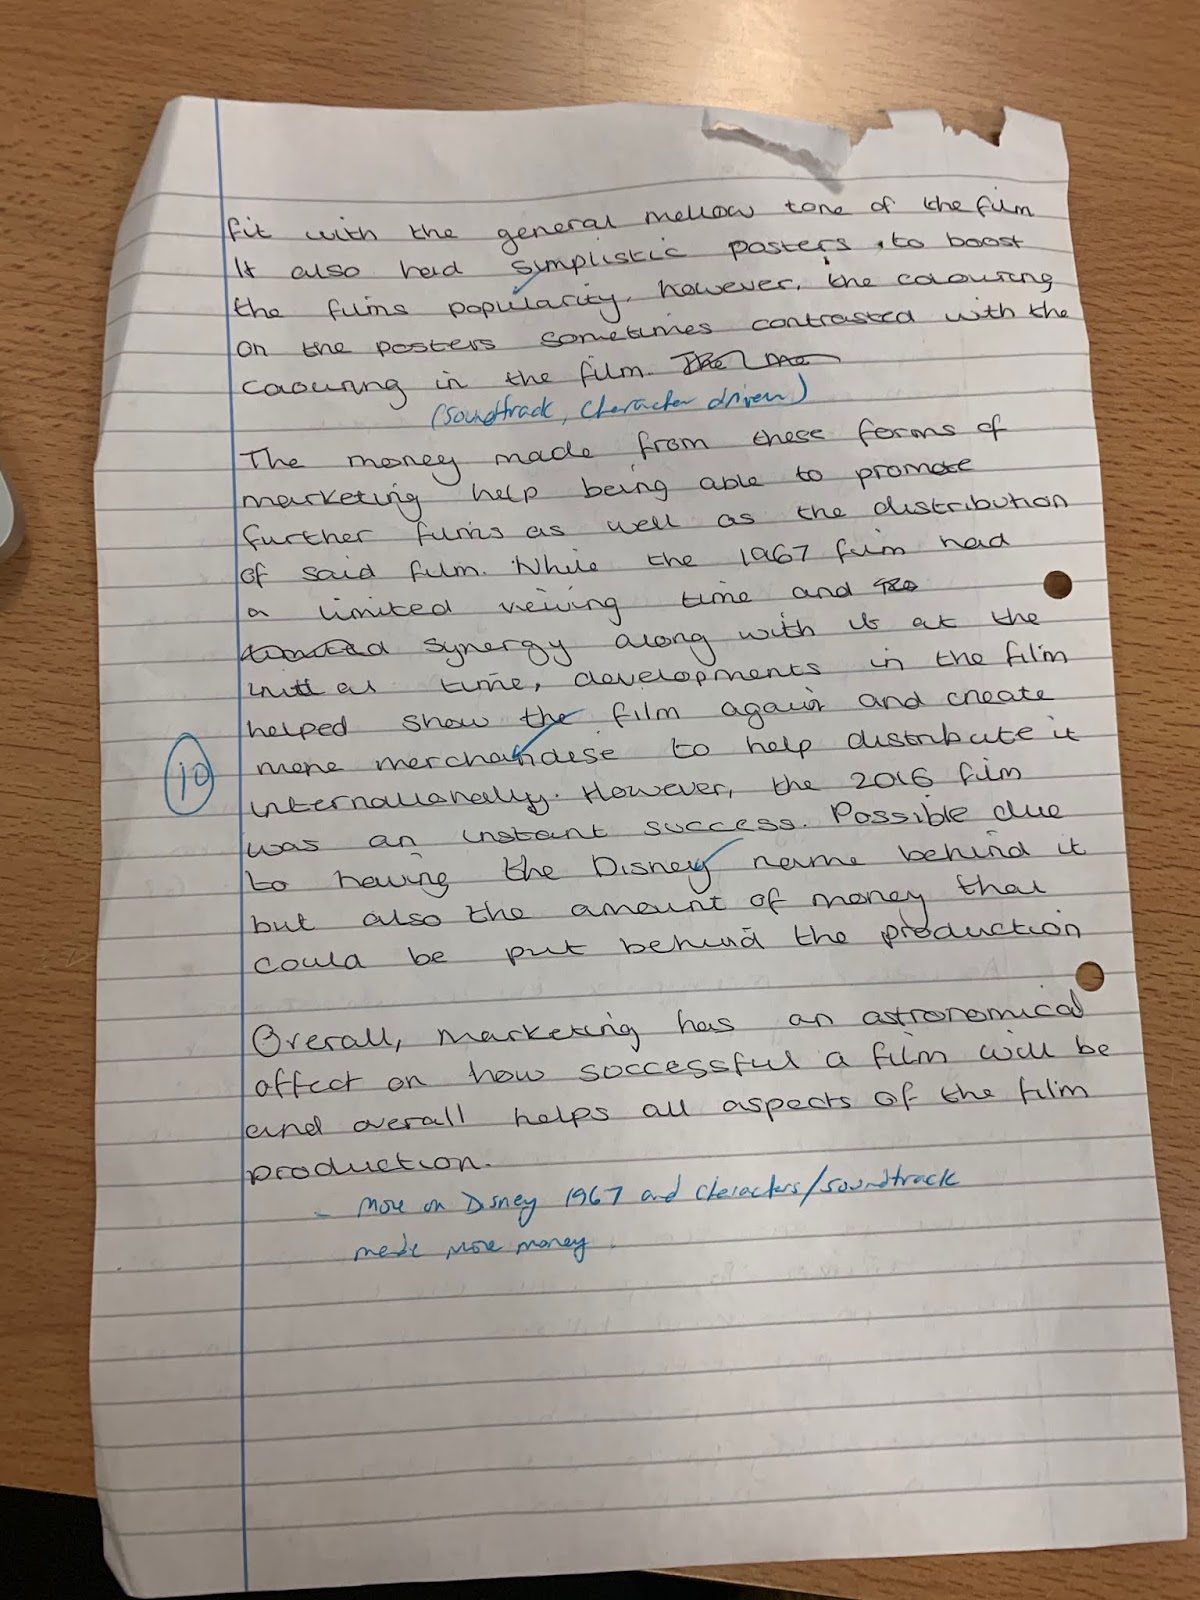 fit with the general mellow tone of the film
It also had simplistic posters, to boost
the films popularity, however, the colouring
on the posters sometimes contrasted with the
colouring in the film.
(soundtrack, character driven)
The money made from these forms of
marketing help being able to promote
further films as well as the distribution
of said film. While the 1967 film had
a limited veiwing time and
synergy along with it at the
initial time, developments in the film
helped show the film again and create
more merchandise to help distribute it
10
internationally. However, the 2016 film
was an instant success. Possible due
to having the Disney name behind it
but also the amount of money that
could be put behind the production
Overall, marketing has an astronomical
affect on how successful a film will be
and overall helps all aspects of the film
production.
- More on Disney 1967 and characters/soundtrack
made more money